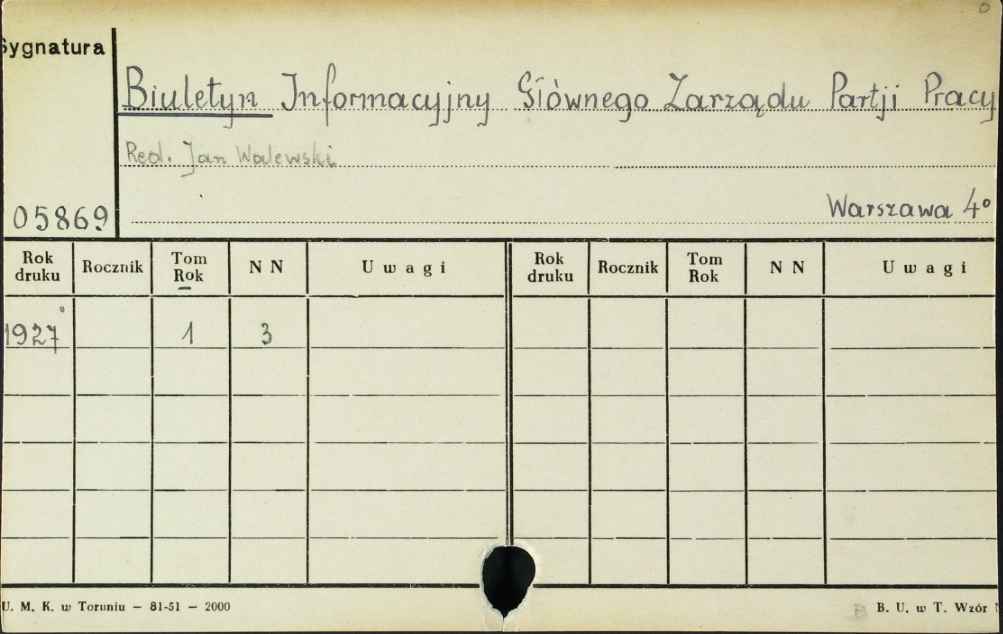 0
Sygnatura
Biuletyn Informacyjny Głównego Zarządu Partji Pracy
Red. Jan Walewski
05869
Warszawa 4°
Rok druku Rocznik Tom Rok N N Uwagi Rok druku Rocznik Tom Rok N N Uwagi
1927° 1 3
U. M. K. w Toruniu — 81-51 — 2000
B. U. w T. Wzór